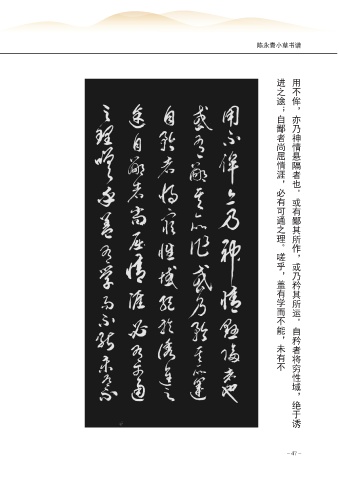 陈永贵小草书谱
用不侔，亦乃神情悬隔者也。或有鄙其所作，或乃矜其所运。自矜者将穷性域，绝于诱
进之途；自鄙者尚屈情涯，必有可通之理。嗟乎，盖有学而不能，未有不
用不侔亦乃神情悬隔者也
或有鄙其所作或乃矜其所运
自矜者将穷性域绝于诱进之
途自鄙者尚屈情涯必有可通
之理嗟乎盖有学而不能未有不
- 47 -